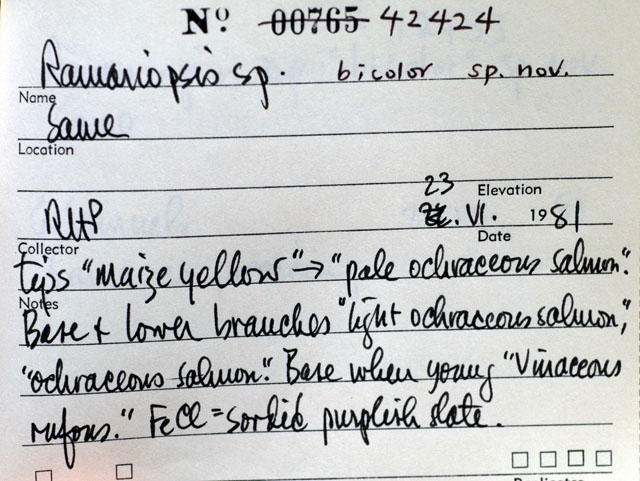 Nº 00765 42424
Ramariopsis sp. bicolor sp. nov.
Name
Same
Location
23
Elevation
RHP .VI. 1981
Collector Date
tips "maize yellow" → "pale ochraceous salmon".
Notes
Base + lower branches "light ochraceous salmon,"
"ochraceous salmon". Base when young "Vinaceous
rufous." FeCl = sordid purplish slate.